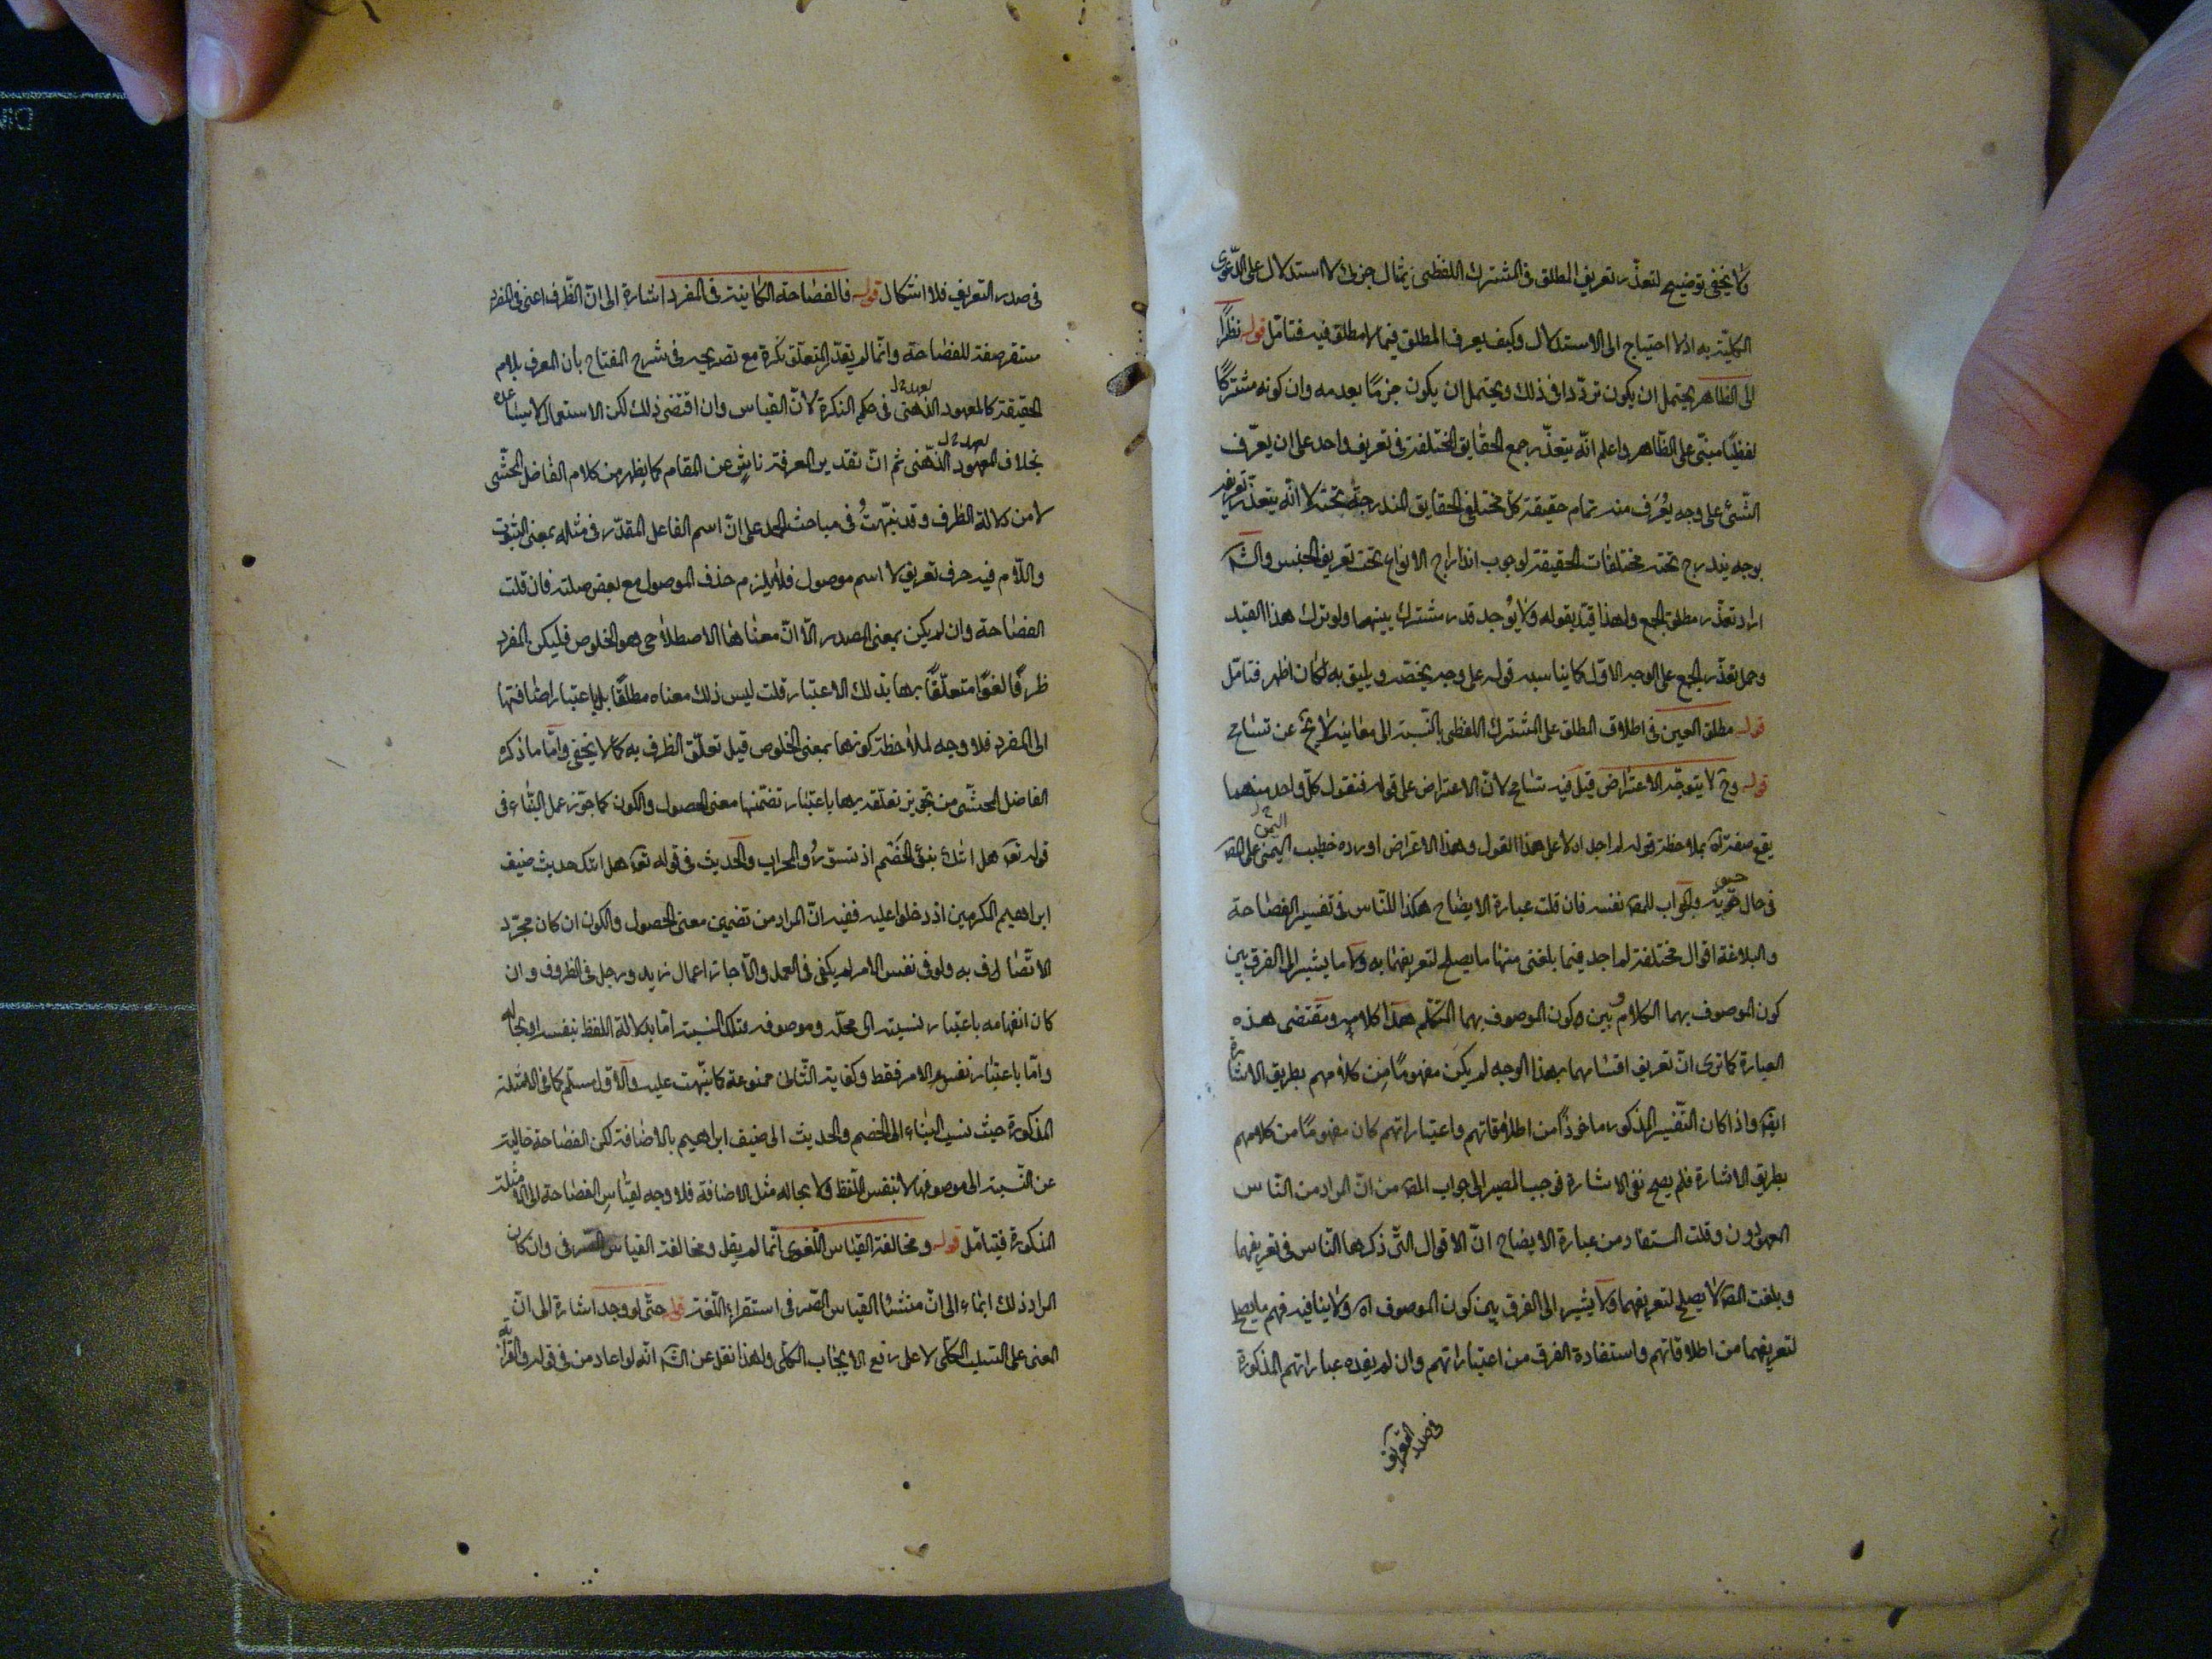 ولا يخفى توضيح لتعذر تعريف المطلق فى المشترك اللفظى بمثال جزئى لا استدلال على الدعوى
الكلية به اذ لا احتياج الى الاستدلال وكيف يعرف المطلق فيما لا مطلق فيه فتامل قوله نظرًا
الى الظاهر يحتمل ان يكون تردّدا فى ذلك ويحتمل ان يكون جزمًا بعدمه وان كونه مشتركًا
لفظيًا مبنى على الظاهر واعلم انّه يتعذّر جمع الحقايق المختلفة فى تعريف واحد على ان يعرّف
الشئ على وجه يُعرف منه تمام حقيقة كل مختلفى الحقايق المندرجة تحته لا انّه يتعذّر تعريفه
بوجه يندرج تحته مختلفات الحقيقة لوجوب اندراج الانواع تحت تعريف الجنس والشـ
اراد تعذّر مطلق الجمع ولهذا قيّد بقوله ولا يُوجد قدر مشترك بينهما ولو ترك هذا القيد
وحمل تعذّر الجمع على الوجه الاول كما يناسبه قوله على وجه يخصّه ويليق به لكان اظهر فتامّل
قوله مطلق العين فى اطلاق المطلق على المشترك اللفظى بالنّسبة الى معانيه لا يخ عن تسامح
قوله وح لا يتوجّه الاعتراض قيل فيه تسامح لانّ الاعتراض على قوله فنقول كلّ واحد منهما
يقع صفة اه بملاحظة قوله لم اجد اه لا على هذا القول وهذا الاعتراض اورده خطيب اليمنى على المص
فى حال حيوته والجواب للمص نفسه فان قلت عبارة الايضاح هكذا للنّاس فى تفسير الفصاحة
والبلاغة اقوال مختلفة لم اجد فيما بلغنى منها ما يصلح لتعريفهما به ولا ما يشير الى الفرق بين
كون الموصوف بهما الكلام وبين كون الموصوف بهما المتكلم هذا كلامه ومقتضى هذه
العبارة كما ترى انّ تعريف اقسامهما بهذا الوجه لم يكن مفهومًا من كلامهم بطريق الاشارة
ايض واذا كان التّفسير المذكور ماخوذًا من اطلاقاتهم واعتباراتهم كان مفهومًا من كلامهم
بطريق الاشارة فلم يصح نفى الاشارة فوجب المصير الى جواب المص من انّ المراد من النّاس
المعهودون وقلت المستفاد من عبارة الايضاح انّ الاقوال التّى ذكرها النّاس فى تعريفهما
وبلغت المص لا يصلح لتعريفهما ولا يشير الى الفرق بين كون الموصوف اه ولا ينافيه فهم ما يصلح
لتعريفهما من اطلاقاتهم واستفادة الفرق من اعتباراتهم وان لم يفده عباراتهم المذكورة
فى صدر التعريف
فى صدر التعريف فلا اشكال قوله فالفصاحة الكاينة فى المفرد اشارة الى انّ الظّرف اعنى فى المفرد
مستقر صفة للفصاحة وانّما لم يقدّر المتعلّق نكرة مع تصريحه فى شرح المفتاح بان المعرف بلام
الحقيقة كالمعهود الذّهنى فى حكم النكرة لانّ القياس وان اقتضى ذلك لكن الاستعمال لا يساعده
بخلاف المعهود الذّهنى ثم انّ تقدير المعرفة ناشٍ عن المقام كما يظهر من كلام الفاضل المحشّى
لا من دلالة الظرف وقد نبّهتُ فى مباحث الحمد على انّ اسم الفاعل المقدّر فى مثله بمعنى الثبوت
واللّام فيه حرف تعريف لا اسم موصول فلا يلزم حذف الموصول مع بعض صلته فان قلت
الفصاحة وان لم يكن بمعنى المصدر الّا انّ معناها الاصطلاحى وهو الخلوص فليكن المفرد
ظرفًا لغوًا متعلّقًا بها بذلك الاعتبار قلت ليس ذلك معناه مطلقًا بل باعتبار اضافتها
الى المفرد فلا وجه لملاحظة كونها بمعنى الخلوص قبل تعلّق الظرف به كما لا يخفى وامّا ما ذكره
الفاضل المحشّى من تجويز تعلّقه بها باعتبار تضمّنها معنى الحصول والكون كما جوّز عمل النّباء فى
قوله تعه هل اتٰك نبؤ الخصم اذ تسوّرُوا المحراب والحديث فى قوله تعه هل اتيك حديث ضيف
ابراهيم المكرمين اذ دخلوا عليه ففيه انّ المراد من تضمين معنى الحصول والكون ان كان مجرّد
الاتّصاف به ولو فى نفس الامر لم يكفى فى العمل والّا جاز اعمال زيد ورجل فى الظروف وان
كان انفهامه باعتبار نسبته الى محلّه وموصوفه فتلك النسبة امّا بدلالة اللفظ بنفسه او بحاله
وامّا باعتبار نفس الامر فقط وكفاية الثّانى ممنوعة كما نبّهت عليه والاول مسلّم كما فى الامثلة
المذكورة حيث نسب النّباء الى الخصم والحديث الى ضيف ابراهيم بالاضافة لكن الفصاحة خالية
عن النّسبة الى موصوفها لا بنفس اللّفظ ولا بحاله مثل الاضافة فلا وجه لقياس الفصاحة الى الامثلة
المذكورة فتامّل قوله ومخالفة القياس اللّغوى انّما لم يقل ومخالفة القياس الصّرفى وان كان
المراد ذلك ايماء الى انّ منشأ القياس الصّرفى استقراء اللّغة قوله حتّى لو وجد اشارة الى انّ
المعنى على السّلب الكلّى لا على رفع الايجاب الكلّى ولهذا نقل عن الشـ انّه لو اعاد من فى قوله والغرابة